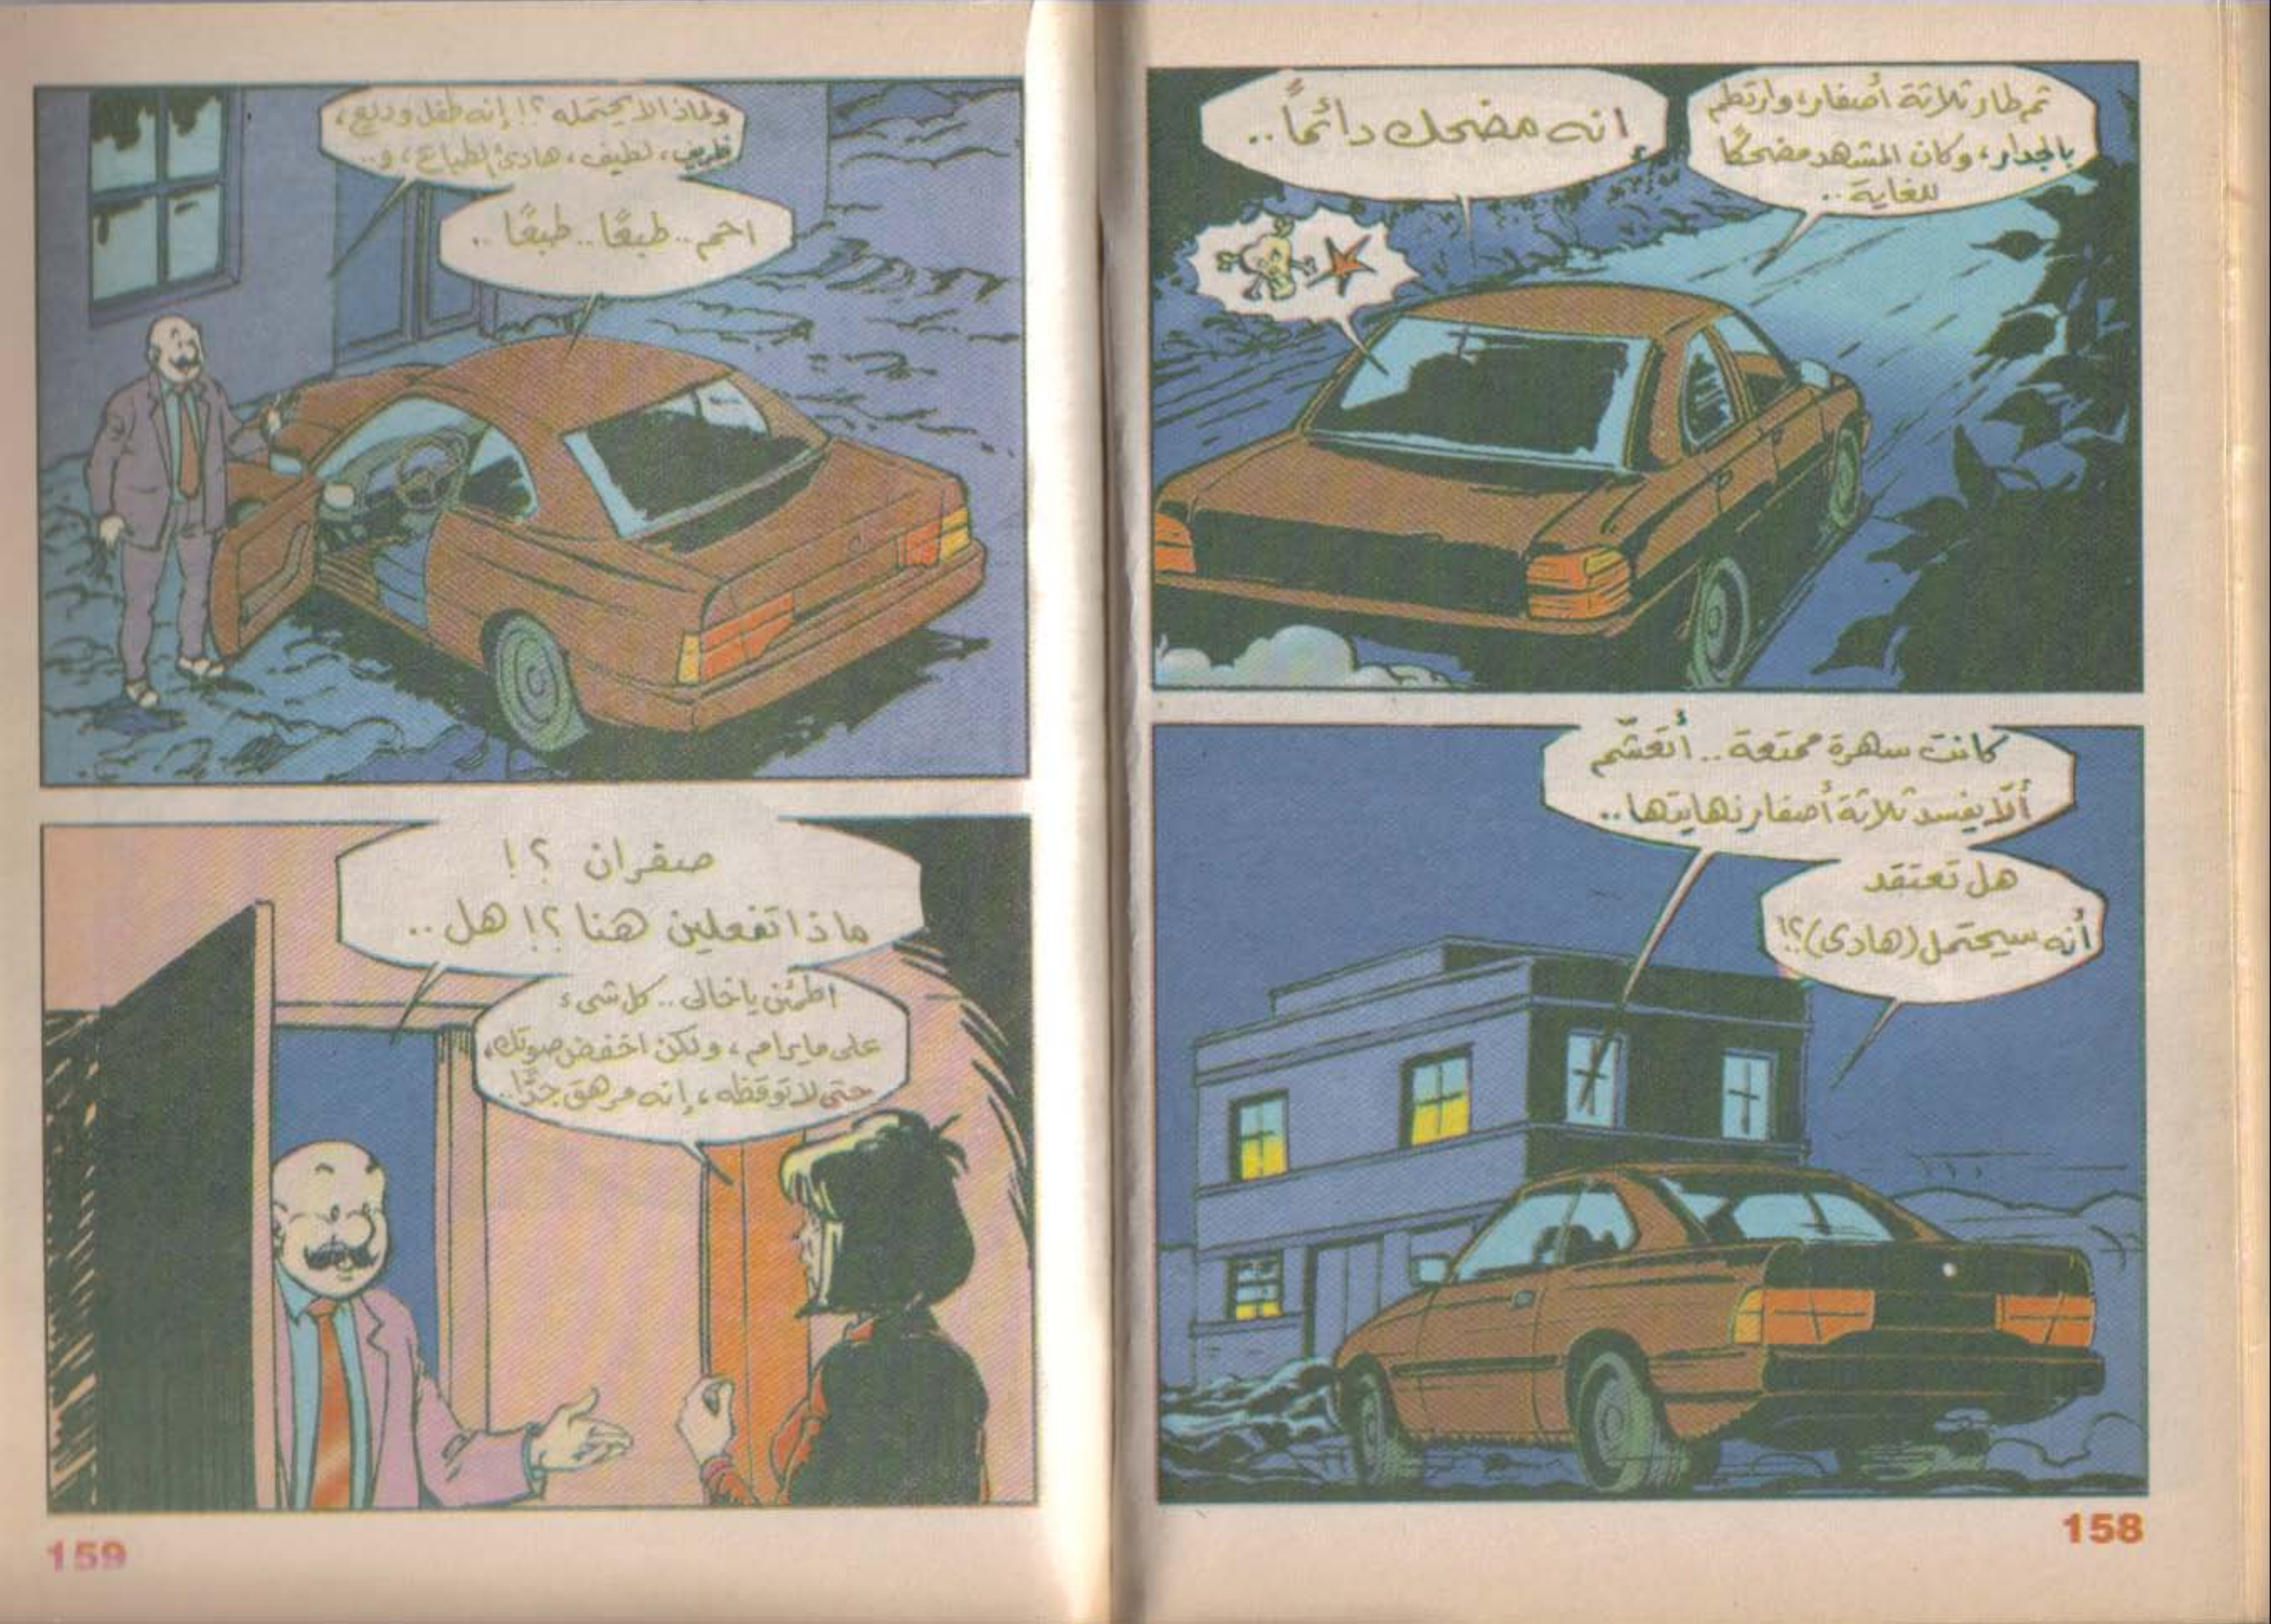 ثم طار ثلاثة أصفار، وارتطم
بالجدار، وكان المشهد مضحكًا
للغاية..
إنه مضحك دائمًا..
كانت سهرة ممتعة.. أتعشّم
ألّا يفسد ثلاثة أصفار نهايتها..
هل تعتقد
أنه سيحتمل (هادى)؟!
158
ولماذا لا يحتمله ؟! إنه طفل وديع،
ظريف، لطيف، هادئ الطباع، و..
احم.. طبعًا.. طبعًا..
صفران ؟!
ماذا تفعلين هنا ؟! هل..
اطمئن يا خالى.. كل شىء
على ما يرام، ولكن اخفض صوتك،
حتى لا توقظه، إنه مرهق جدًّا..
159